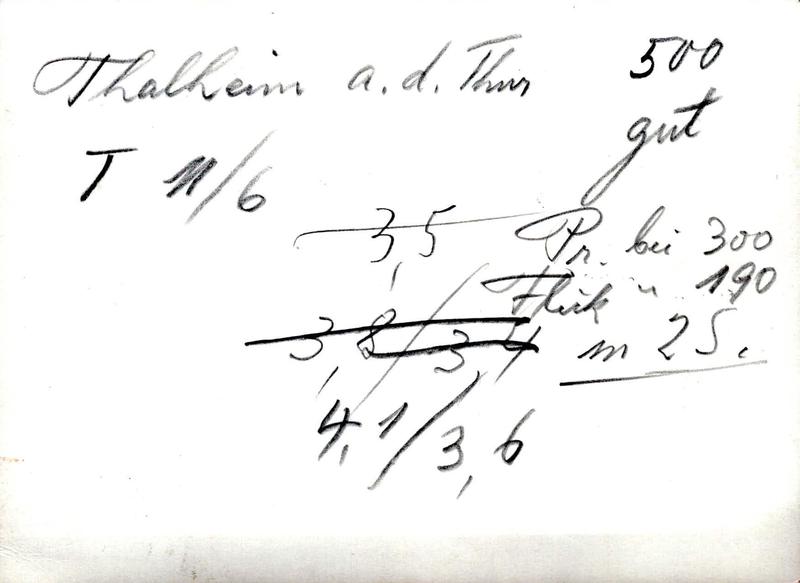 Thalheim a. d. Thur 500
gut
T 11/6
3,5 Pr. bei 300
Flick " 190
3,8/3,4 m 25.
4,1/3,6